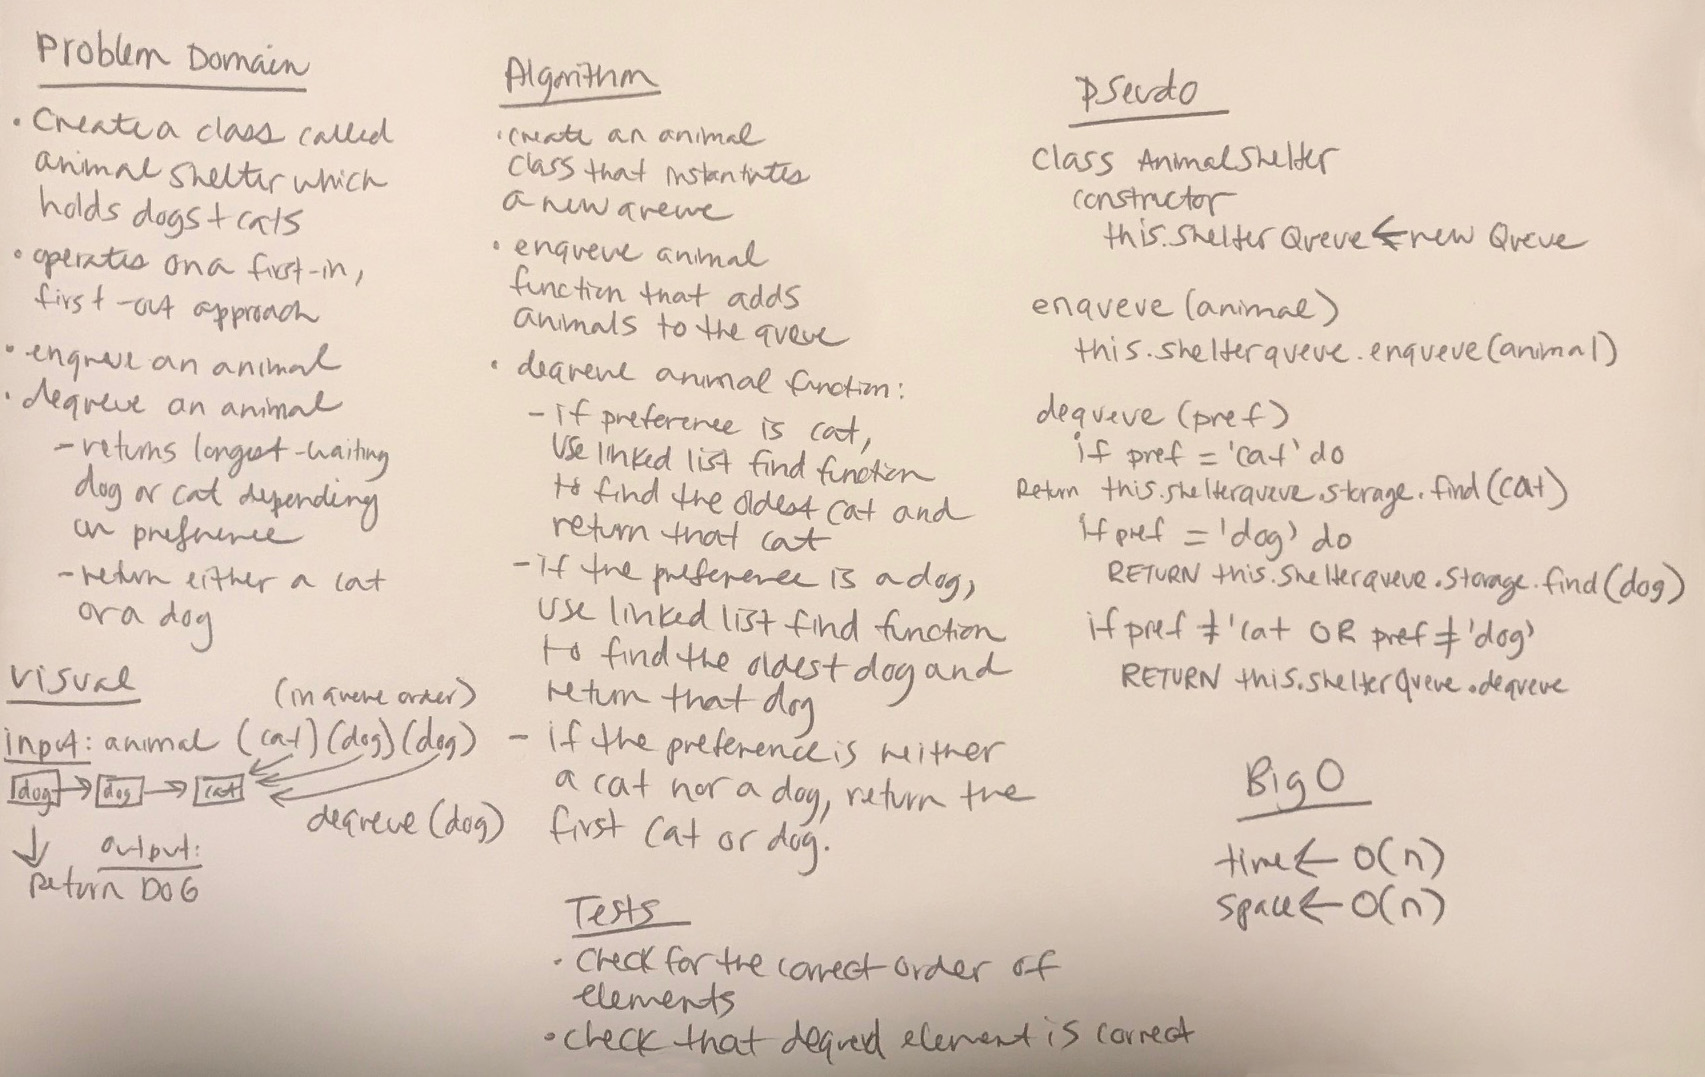 Problem Domain
• Create a class called
animal shelter which
holds dogs + cats
• operates on a first-in,
first-out approach
• enqueue an animal
• dequeue an animal
- returns longest-waiting
dog or cat depending
on preference
- return either a cat
or a dog
Visual
(in queue order)
input: animal (cat)(dog)(dog)
dog → dog → cat
dequeue (dog)
output:
Return DOG
Algorithm
• create an animal
class that instantiates
a new queue
• enqueue animal
function that adds
animals to the queue
• dequeue animal function:
- if preference is cat,
use linked list find function
to find the oldest cat and
return that cat
- if the preference is a dog,
use linked list find function
to find the oldest dog and
return that dog
- if the preference is neither
a cat nor a dog, return the
first cat or dog.
Tests
• check for the correct order of
elements
• check that dequed element is correct
Pseudo
class AnimalShelter
constructor
this.shelterQueue ← new Queue
enqueue (animal)
this.shelterqueue.enqueue(animal)
dequeue (pref)
if pref = 'cat' do
Return this.shelterqueue.storage.find(cat)
if pref = 'dog' do
RETURN this.shelterqueue.storage.find(dog)
if pref ≠ 'cat OR pref ≠ 'dog'
RETURN this.shelterQueue.dequeue
Big O
time ← O(n)
space ← O(n)